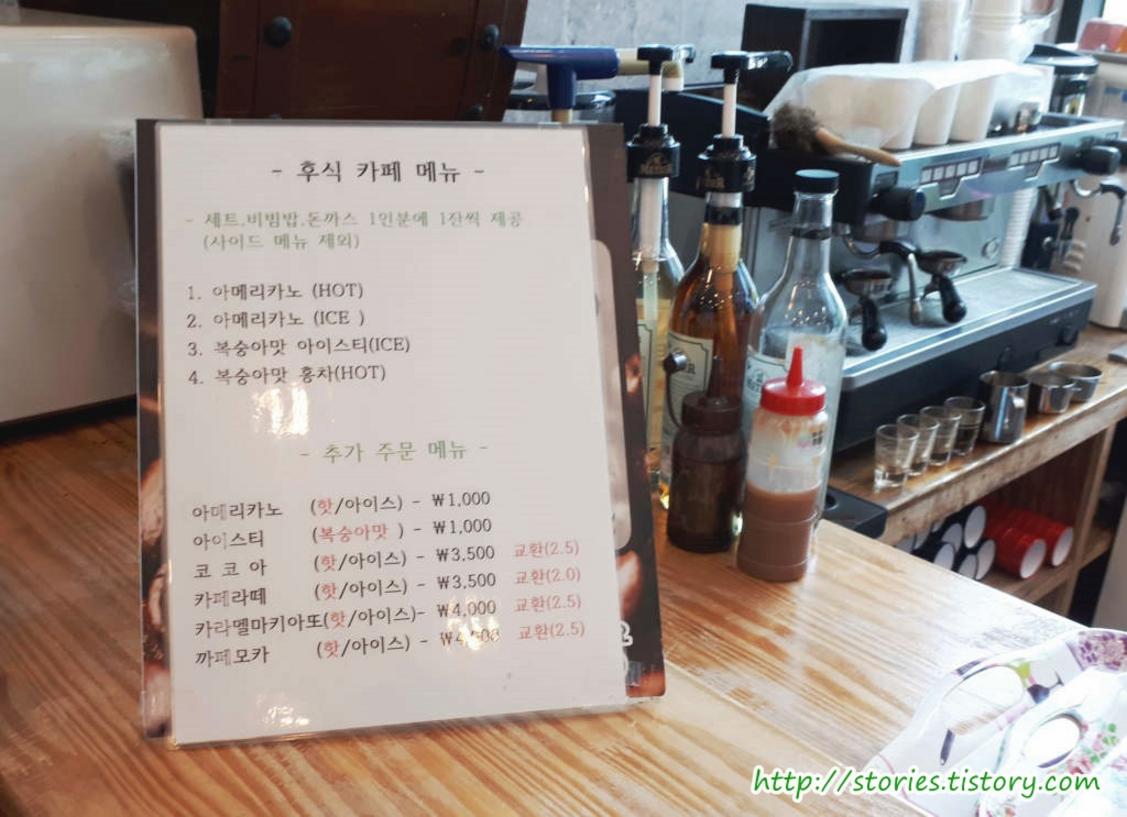 - 후식 카페 메뉴 -
- 세트,비빔밥,돈까스 1인분에 1잔씩 제공
(사이드 메뉴 제외)
1. 아메리카노 (HOT)
2. 아메리카노 (ICE )
3. 복숭아맛 아이스티(ICE)
4. 복숭아맛 홍차(HOT)
- 추가 주문 메뉴 -
아메리카노 (핫/아이스) - ₩1,000
아이스티 (복숭아맛 ) - ₩1,000
코 코 아 (핫/아이스) - ₩3,500 교환(2.5)
카페라떼 (핫/아이스) - ₩3,500 교환(2.0)
카라멜마키아또(핫/아이스)- ₩4,000 교환(2.5)
까페모카 (핫/아이스) - 교환(2.5)
http://stories.tistory.com